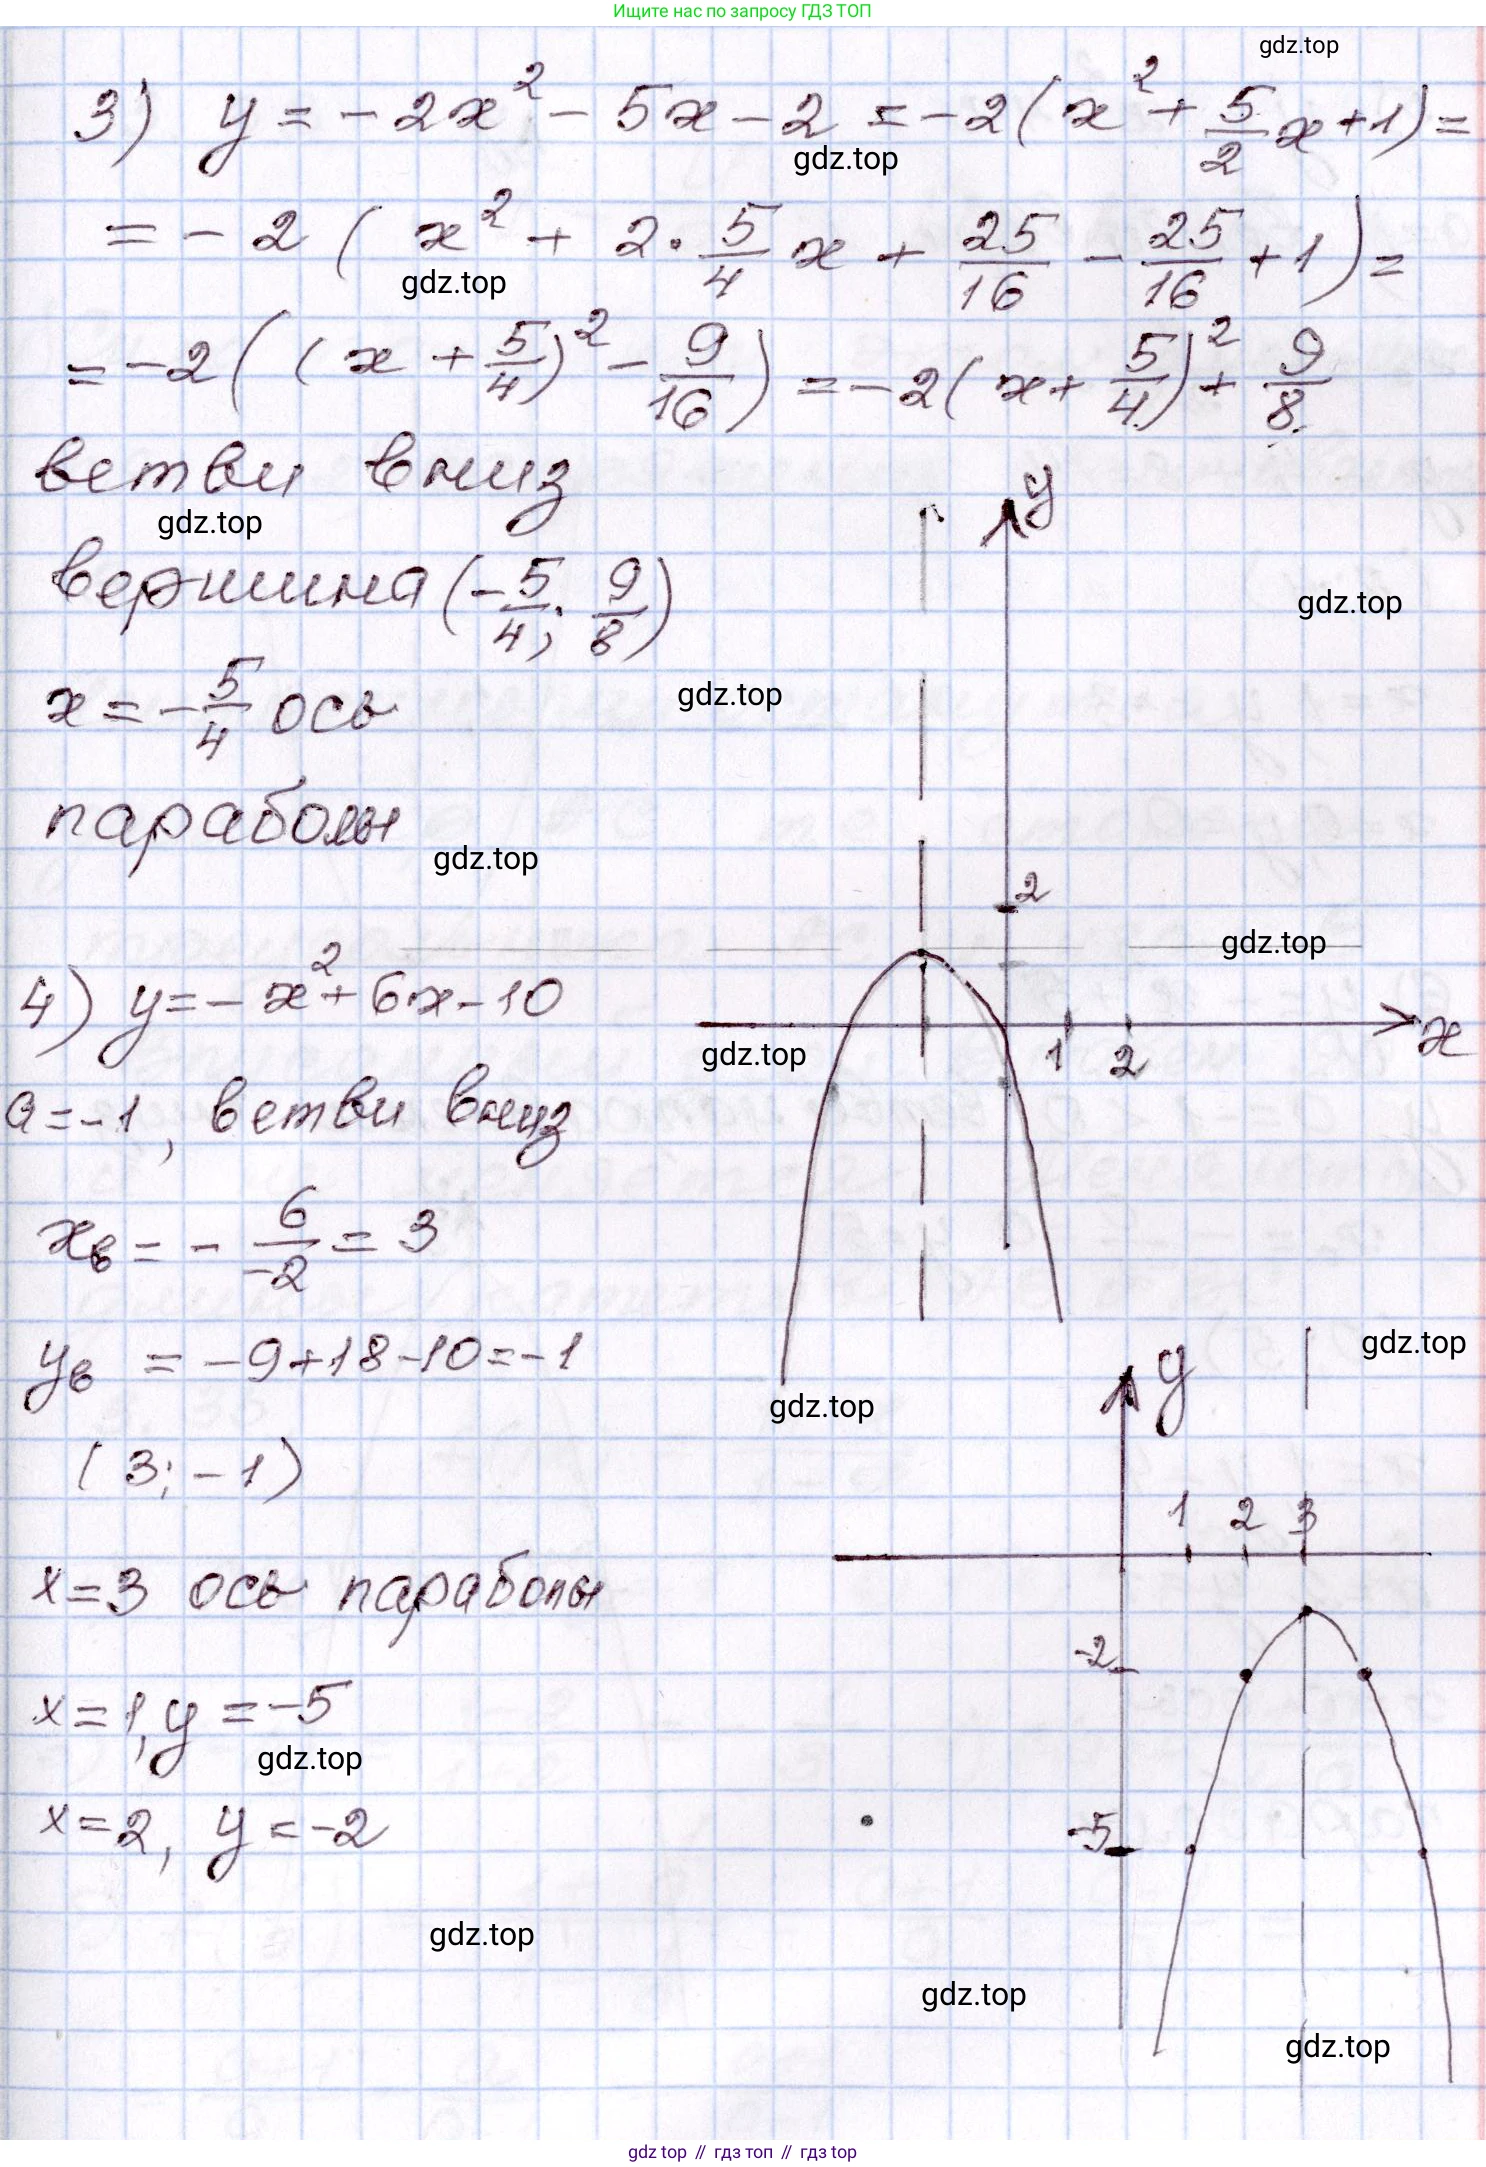 Ищите нас по запросу ГДЗ ТОП
gdz.top
3) y = -2x² - 5x - 2 = -2(x² + 5/2 x + 1) =
gdz.top
= -2 ( x² + 2 · 5/4 x + 25/16 - 25/16 + 1 ) =
gdz.top
= -2 ( ( x + 5/4 )² - 9/16 ) = -2 ( x + 5/4 )² + 9/8
ветви вниз
y
gdz.top
вершина (-5/4; 9/8)
gdz.top
x = -5/4 ось
gdz.top
параболы
gdz.top
2
gdz.top
4) y = -x² + 6x - 10
gdz.top
1 2 x
a = -1, ветви вниз
xв = - 6/-2 = 3
yв = -9+18-10=-1
gdz.top
y
gdz.top
(3; -1)
1 2 3
x=3 ось параболы
-2
x=1, y=-5
gdz.top
x=2, y=-2
-5
gdz.top
gdz.top
gdz.top
gdz top // гдз топ // гдз top